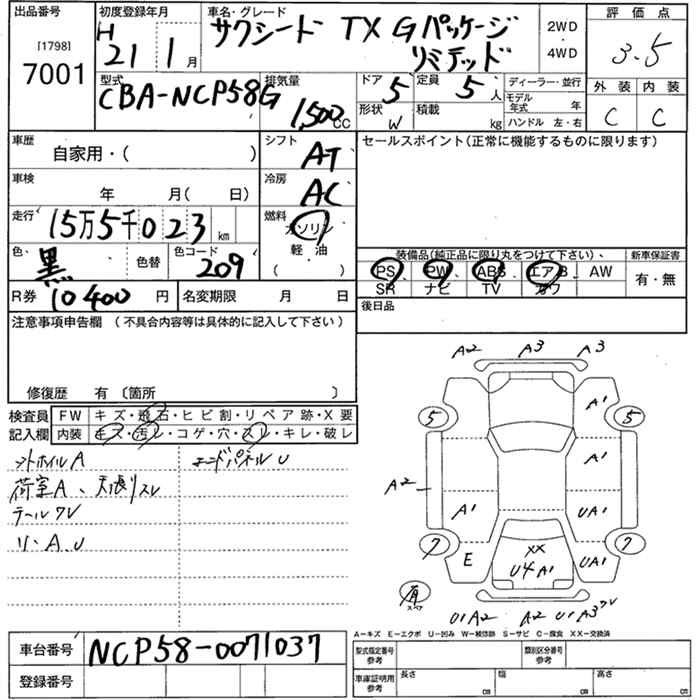 出品番号
[1798]
7001
初度登録年月
H 21 1 月
車名・グレード
サクシード TX Gパッケージ
リミテッド
2WD
4WD
評価点
3.5
型式
CBA-NCP58G
排気量
1,500 CC
ドア 5
定員 5 人
形状 W
積載 kg
ディーラー・並行
モデル年式 年
ハンドル 左・右
外装 内装
C C
車歴
自家用・( )
シフト
AT
セールスポイント(正常に機能するものに限ります)
車検
年 月( 日)
冷房
AC
走行
15万5千023 km
燃料
ガソリン
軽油
( )
色
黒
色替
色コード
209
装備品(純正品に限り丸をつけて下さい)、
新車保証書
PS PW ABS エアB AW
SR ナビ TV カワ
有・無
R券 10400 円
名変期限 月 日
後日品
注意事項申告欄(不具合内容等は具体的に記入して下さい)
修復歴 有〔箇所 〕
検査員 FW キズ・飛石・ヒビ割・リペア跡・X要
記入欄 内装 キズ・汚レ・コゲ・穴・スレ・キレ・破レ
ホイルA
エンドパネルU
荷室A、天張リスレ
テールワレ
リ・A、U
A2 A3 A3
5 A1 5
A1
A2
A1 UA1
7 E XX UA1 7
U4 A1
有 スペア
U1A2 A2 U1A3ワレ
A-キズ E-エクボ U-凹み W-補修跡 S-サビ C-腐食 XX-交換済
車台番号 NCP58-0071037
登録番号
型式指定番号
参考
類別区分番号
参考
車庫証明用
参考
長さ cm
幅 cm
高さ cm